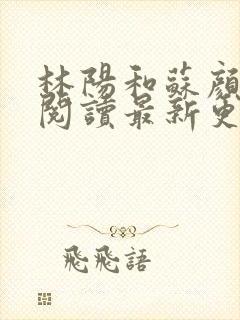 林陽和蘇顏
閱讀最新更
飛飛語